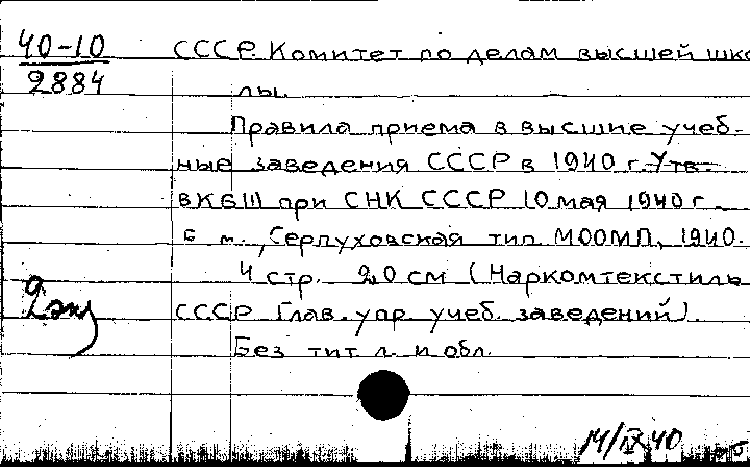 40-10
2884
СССР. Комитет по делам высшей шко
лы.
Правила приема в высшие учеб-
ные заведения СССР в 1940 г. Утв.
ВКВШ при СНК СССР 10 мая 1940 г.
Б. м., Серпуховская тип. МООМП, 1940.
4 стр. 20 см (Наркомтекстиль
СССР Глав. упр. учеб. заведений).
Без тит. л. и обл.
2 экз
14/IX 40